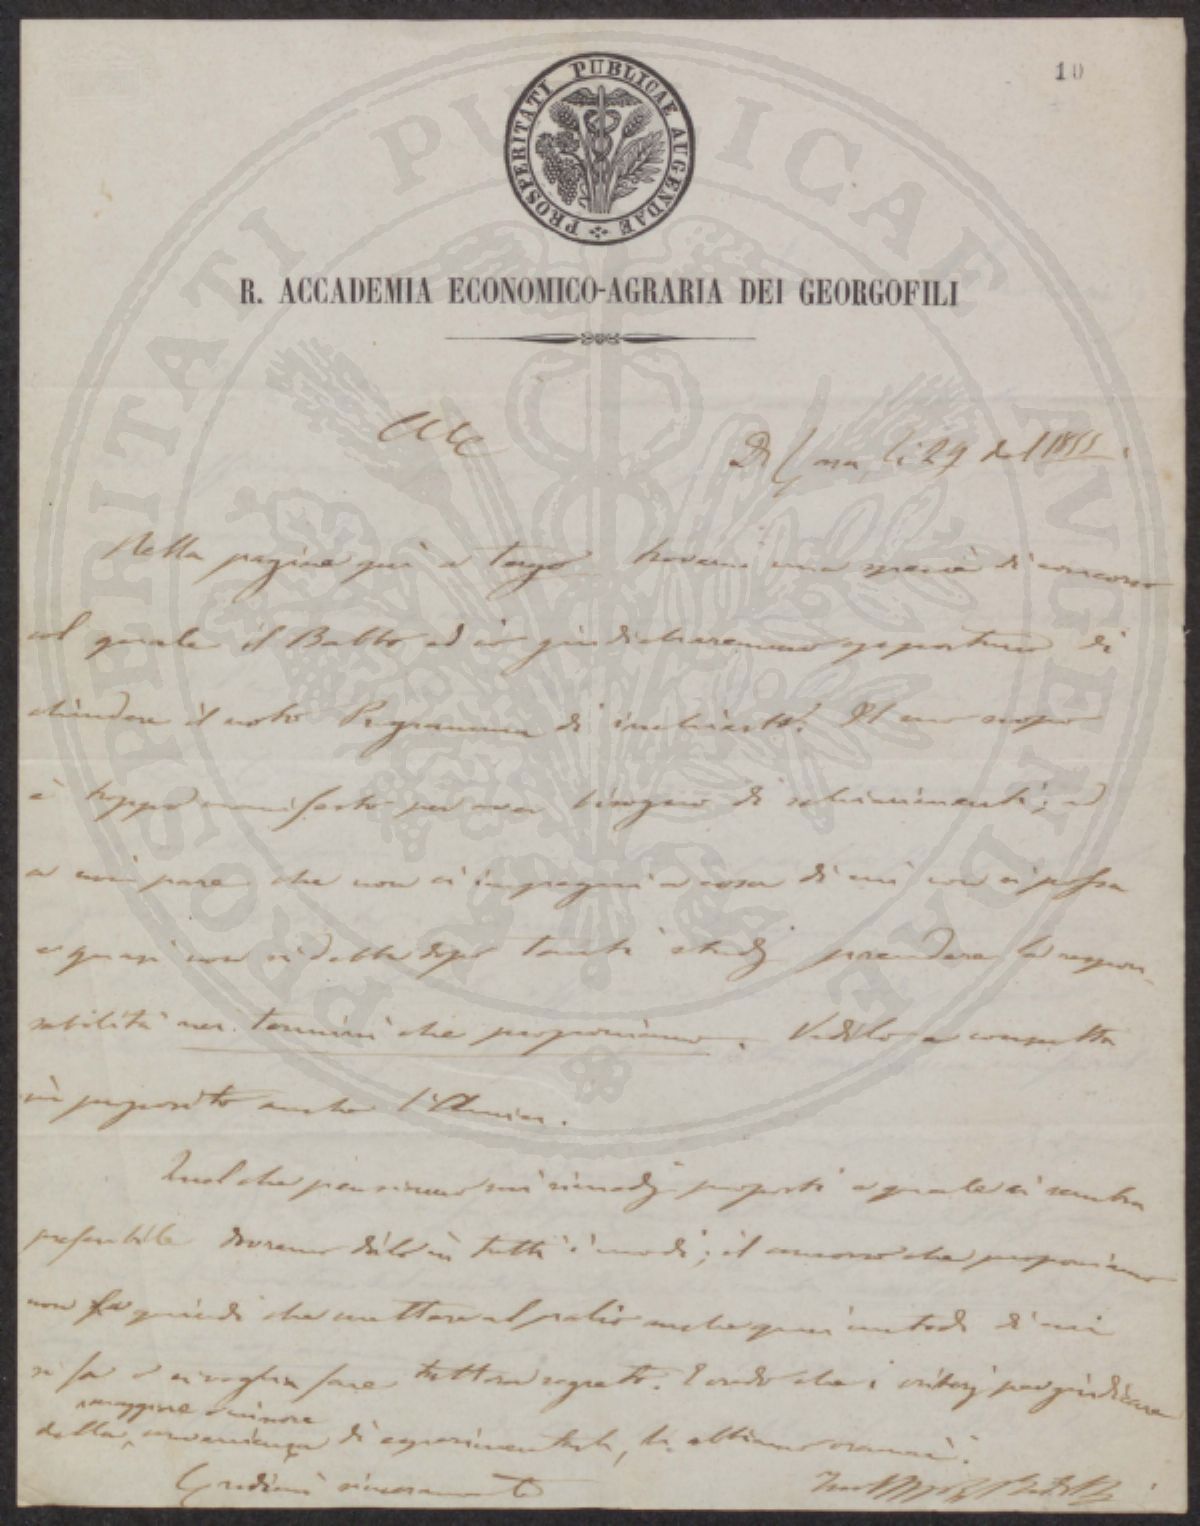 10
PROSPERITATI PUBLICAE AUGENDAE
R. ACCADEMIA ECONOMICO-AGRARIA DEI GEORGOFILI
Di Casa, li 29 del 1855.
Nella pagina qui a tergo troverai una specie di concorso
col quale il Babbo ed io giudicheremmo opportuno di
chiudere il noto Programma di inchiesta. Il suo scopo
è troppo manifesto per aver bisogno di schiarimenti; ed
a noi pare che non ci impegni a cosa di cui non si possa
e quasi non si debba dopo tanti studj prendere la respon-
sabilità nei termini che proponiamo. Vedilo e consulta
in proposito anche l'Amici.
Quel che pensiamo sui rimedj proposti e quale ci sembra
preferibile dovremo dirlo in tutti i modi; il concorso che proponiamo
non fa quindi che mettere al palio anche quei metodi di cui
si fa o si voglia fare tuttora segreto. Credo che i criterj per giudicare
maggiore o minore
della convenienza di esperimentarli, li abbiamo oramai.
Credimi sinceramente